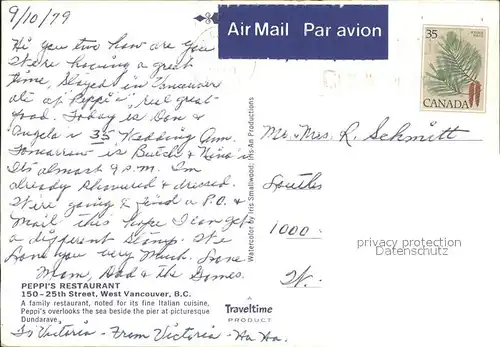 9/10/79
Hi you two how are you
We're having a great
time, Stayed in Vancouver
ate at Peppi's, real great
food. Today is Don &
Angela's 35 Wedding Ann.
Tomorrow is Butch & Nina's
Its almost 9 p.m. I'm
already showered & dressed.
We're going to find a P.O. &
Mail this hope I can get
a different Stamp. We
Love you very much. Love
Mom, Dad & the
To Victoria - From Victoria - Ha Ha.
PEPPI'S RESTAURANT
150-25th Street, West Vancouver, B.C.
A family restaurant, noted for its fine Italian cuisine,
Peppi's overlooks the sea beside the pier at picturesque
Dundarave.
Watercolor by Iris Smallwood; Iris-An Productions
Traveltime
PRODUCT
Air Mail Par avion
35
CANADA
Mr. Mrs. R. Schmitt
1000
W.
privacy protection
Datenschutz